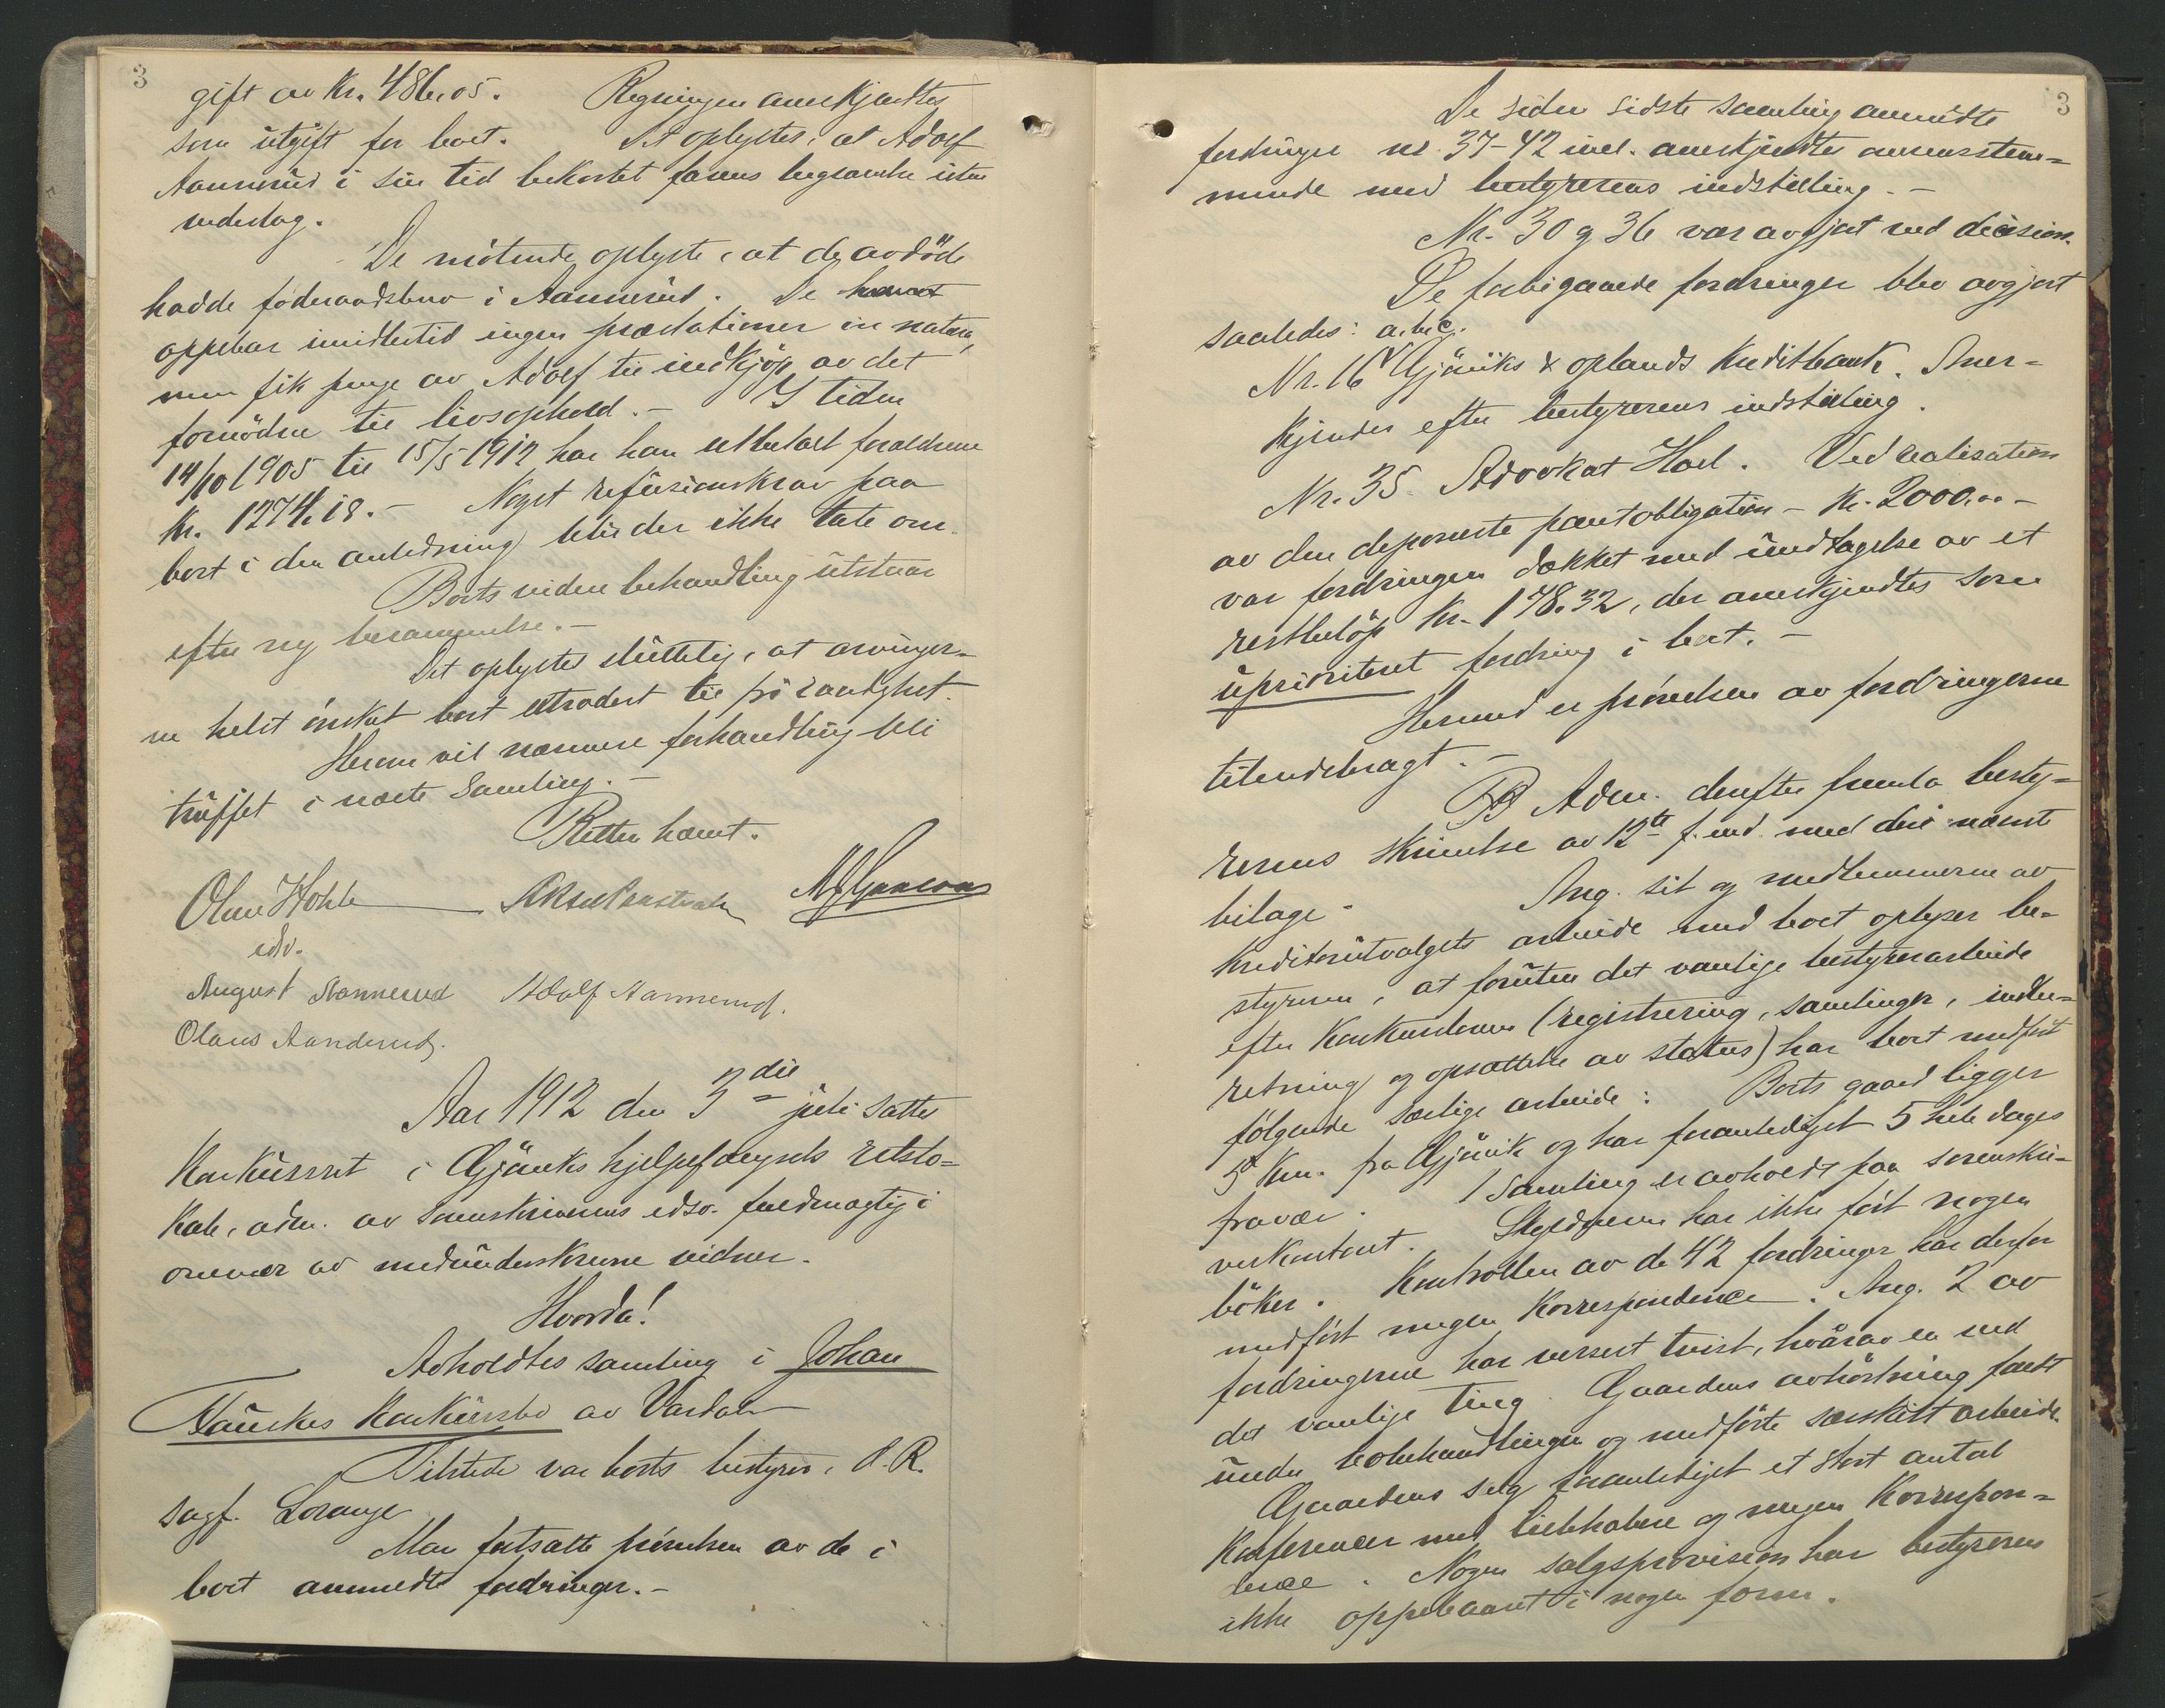 3
gift av Kr. 486.05. Regningen anerkjendtes
som utgift for boet. Det oplystes, at Adolf
Aannerud i sin tid bekostet farens begravelse uten
vederlag.
De møtende oplyste, at de avdøde
hadde føderaadsbrev i Aannerud. De
oppebar imidlertid ingen præstationer in natura,
men fik penge av Adolf til indkjøp av det
fornødne til livsophold. - I tiden
14/10 1905 til 15/5 1912 har han utbetalt forældrene
Kr. 1274.18. - Noget refusionskrav paa
boet i den anledning blir der ikke tale om.
Boets videre behandling utstaar
efter ny berammelse. -
Det oplystes sluttelig, at arvinger-
ne helst ønsket boet utlodert til privat skifte.
Herom vil nærmere forhandling bli
truffet i næste samling. -
Retten hævet.
Olav Hohle
edv.
August Aannerud Adolf Aannerud.
Olaus Aannerud.
Aar 1912 den 3die juli sattes
Konkursret i Gjøviks hjelpefængsels retslo-
kale, adm. av sorenskriverens edsv. fuldmægtig i
overvær av medunderskrevne vidner.
Hvorda!
Avholdtes samling i Johan
Konkursbo av Vardal
Tilstede var boets bestyrer, O.R.
sagf. Lorange
Man fortsatte prøvelsen av de i
boet anmeldte fordringer. -
3
De siden sidste samling anmeldte
fordringer nr. 37-42 incl. anerkjendtes overensstem-
mende med bestyrerens indstilling. -
Nr. 30 og 36 var avgjort ved decision.
De forbigaaede fordringer blev avgjort
saaledes: a. b. c.
Nr. 16 Gjøviks & oplands Kreditbank. Aner-
kjendes efter bestyrerens indstilling.
Nr. 35 Advokat Hoel. Ved realisation
av den deponerte pantobligation - Kr. 2000.00 -
var fordringen dækket med undtagelse av et
restbeløp Kr. 178.32, der anerkjendtes som
uprioritert fordring i boet. -
Hermed er prøvelsen av fordringerne
tilendebragt. -
Adm. derefter fremla besty-
rerens skrivelse av 12te f. md. med deri nævnte
bilage - Ang. sit og medlemmerne av
Kreditorutvalgets arbeide med boet oplyser be-
styreren, at foruten det vanlige bestyrerarbeide
efter Konkursloven (registrering, samlinger, indbe-
retning og opsættelse av status) har boet medført
følgende særlige arbeide: Boets gaard ligger
5 Km. fra Gjøvik og har foranlediget 5 hele dages
fravær. 1 samling er avholdt paa sorenskri-
verkontoret. Skyldneren har ikke ført nogen
bøker. Kontrollen av de 42 fordringer har derfor
medført megen Korrespondence. Ang. 2 av
fordringerne har versert tvist, hvorav en ved
det vanlige ting. Gaardens avhøstning faldt
under bobehandlingen og medførte særskilt arbeide.
Gaardens salg foranlediget et stort antal
Konferencer med liebhabere og megen Korrespon-
dence. Nogen salgsprovision har bestyreren
ikke oppebaaret i nogen form.